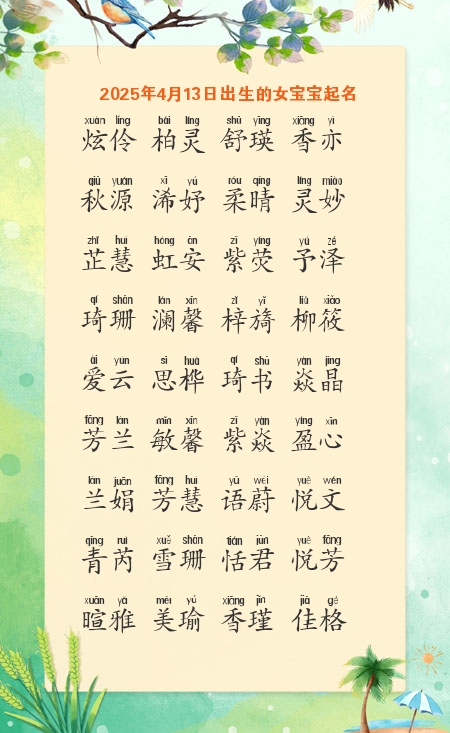 2025年4月13日出生的女宝宝起名
xuàn líng bái líng shū yīng xiāng yì
炫伶 柏灵 舒瑛 香亦
qiū yuán xī yú róu qíng líng miào
秋源 浠妤 柔晴 灵妙
zhǐ huì hóng ān zǐ yíng yú zé
芷慧 虹安 紫荧 予泽
qí shān lán xīn zǐ yǐ liǔ xiǎo
琦珊 澜馨 梓旖 柳筱
ài yún sī huà qí shū yàn jīng
爱云 思桦 琦书 焱晶
fāng lán mǐn xīn zǐ yàn yíng xīn
芳兰 敏馨 紫焱 盈心
lán juān fāng huì yǔ wèi yuè wén
兰娟 芳慧 语蔚 悦文
qīng ruì xuě shān tián jūn yuè fāng
青芮 雪珊 恬君 悦芳
xuān yǎ měi yú xiāng jǐn jiā gé
暄雅 美瑜 香瑾 佳格